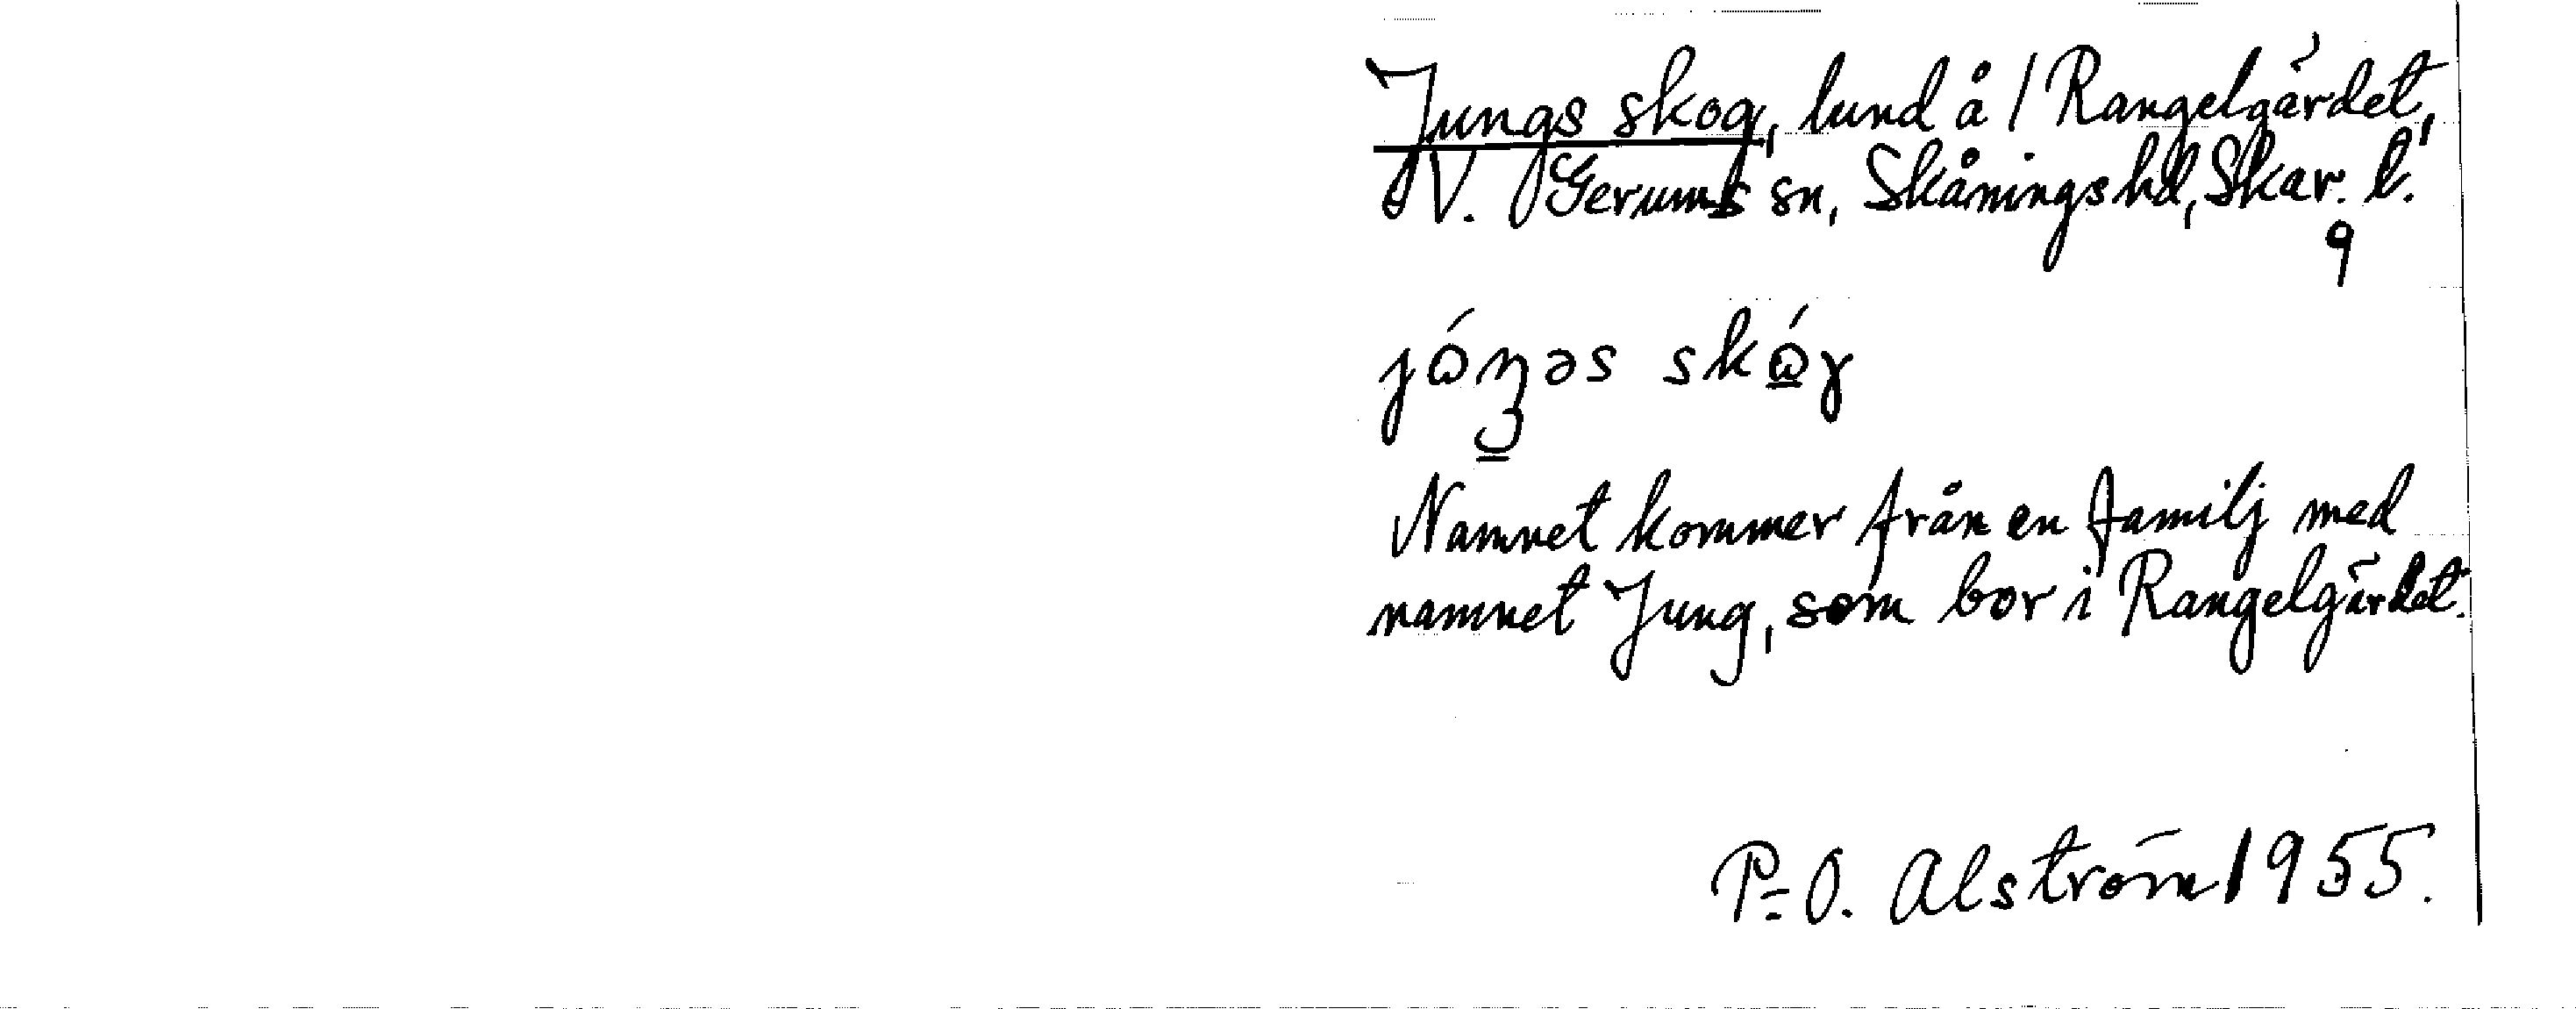 Jungs skog, lund å 1 Rangelgärdet,
N. Gerums sn, Skånings hd, Skar. l.
9
Namnet kommer från en familj med
namnet Jung, som bor i Rangelgärdet.
P-O. Alström 1955.